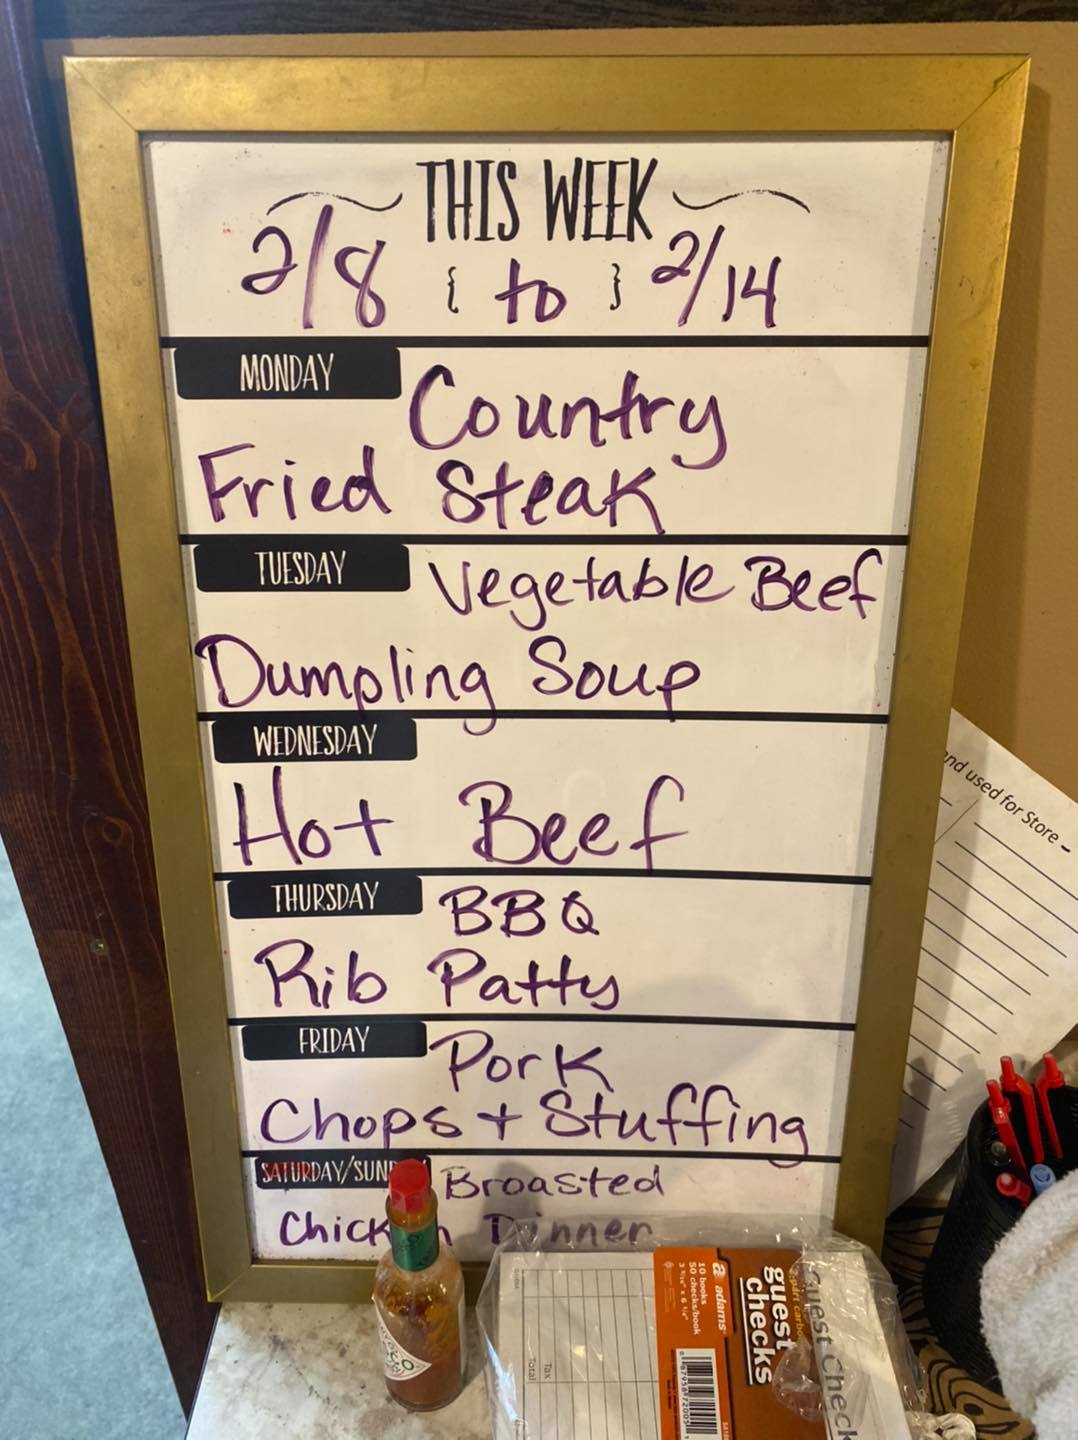 THIS WEEK
2/8 { to } 2/14
MONDAY Country
Fried Steak
TUESDAY Vegetable Beef
Dumpling Soup
WEDNESDAY
Hot Beef
THURSDAY BBQ
Rib Patty
FRIDAY Pork
Chops + Stuffing
SATURDAY/SUN Broasted
Chick n Dinner
nd used for Store -
adams
10 books
50 checks/book
guest
checks
Guest Check
Tax
Total